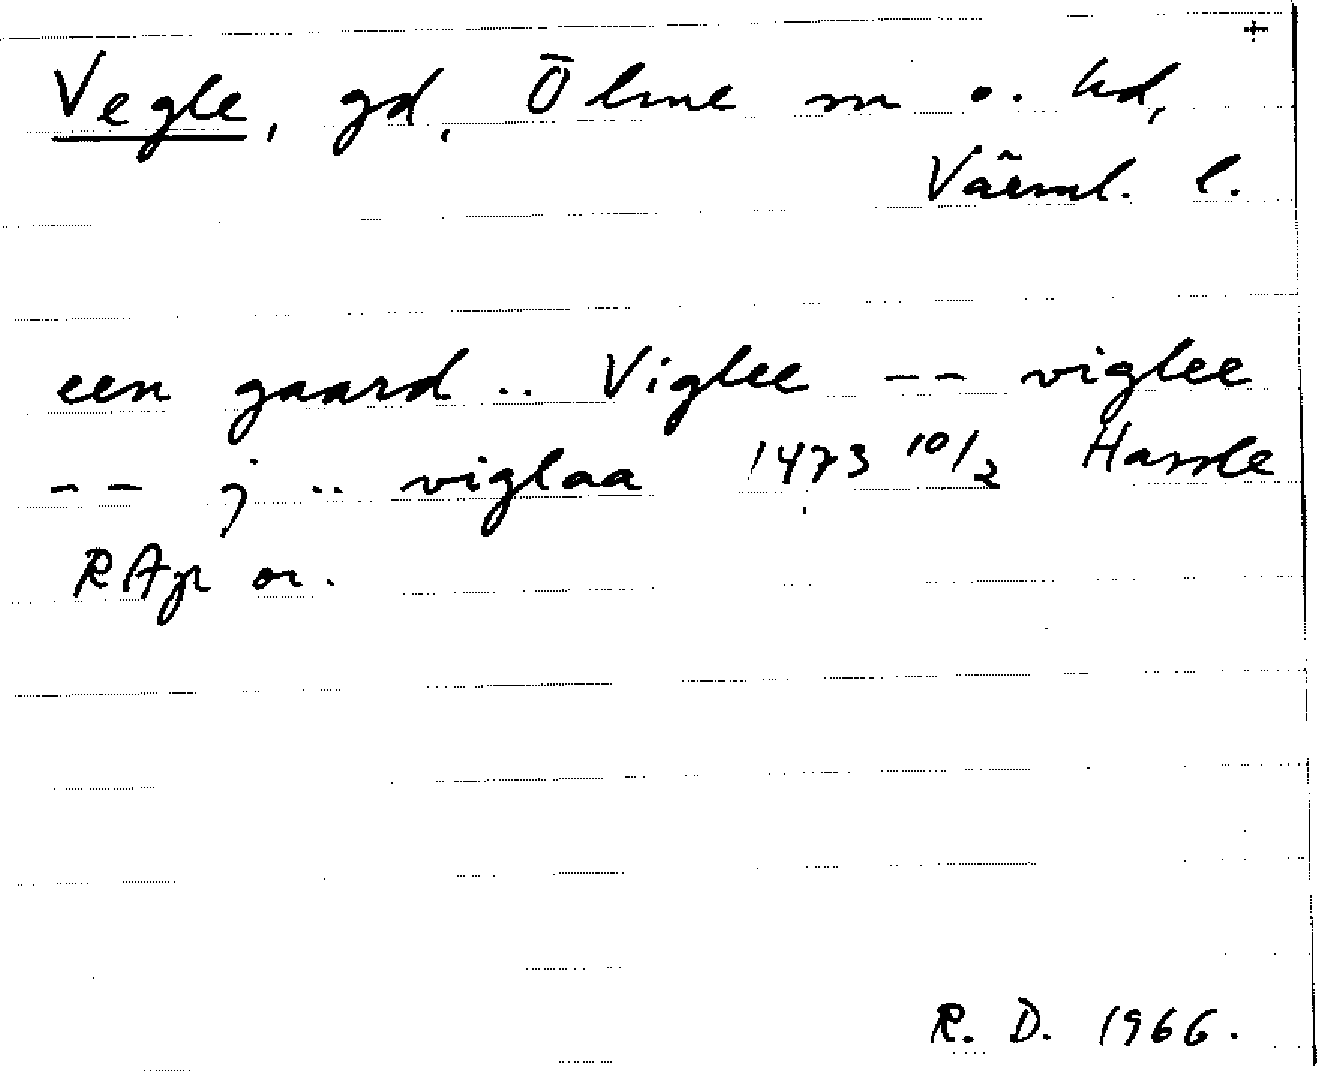 +
Vegle, gd, Ölme sn o. hd,
Värml. l.
een gaard .. Viglee -- viglee
-- j .. viglaa 1473 10/2 Hassle
RAp or.
R. D. 1966.